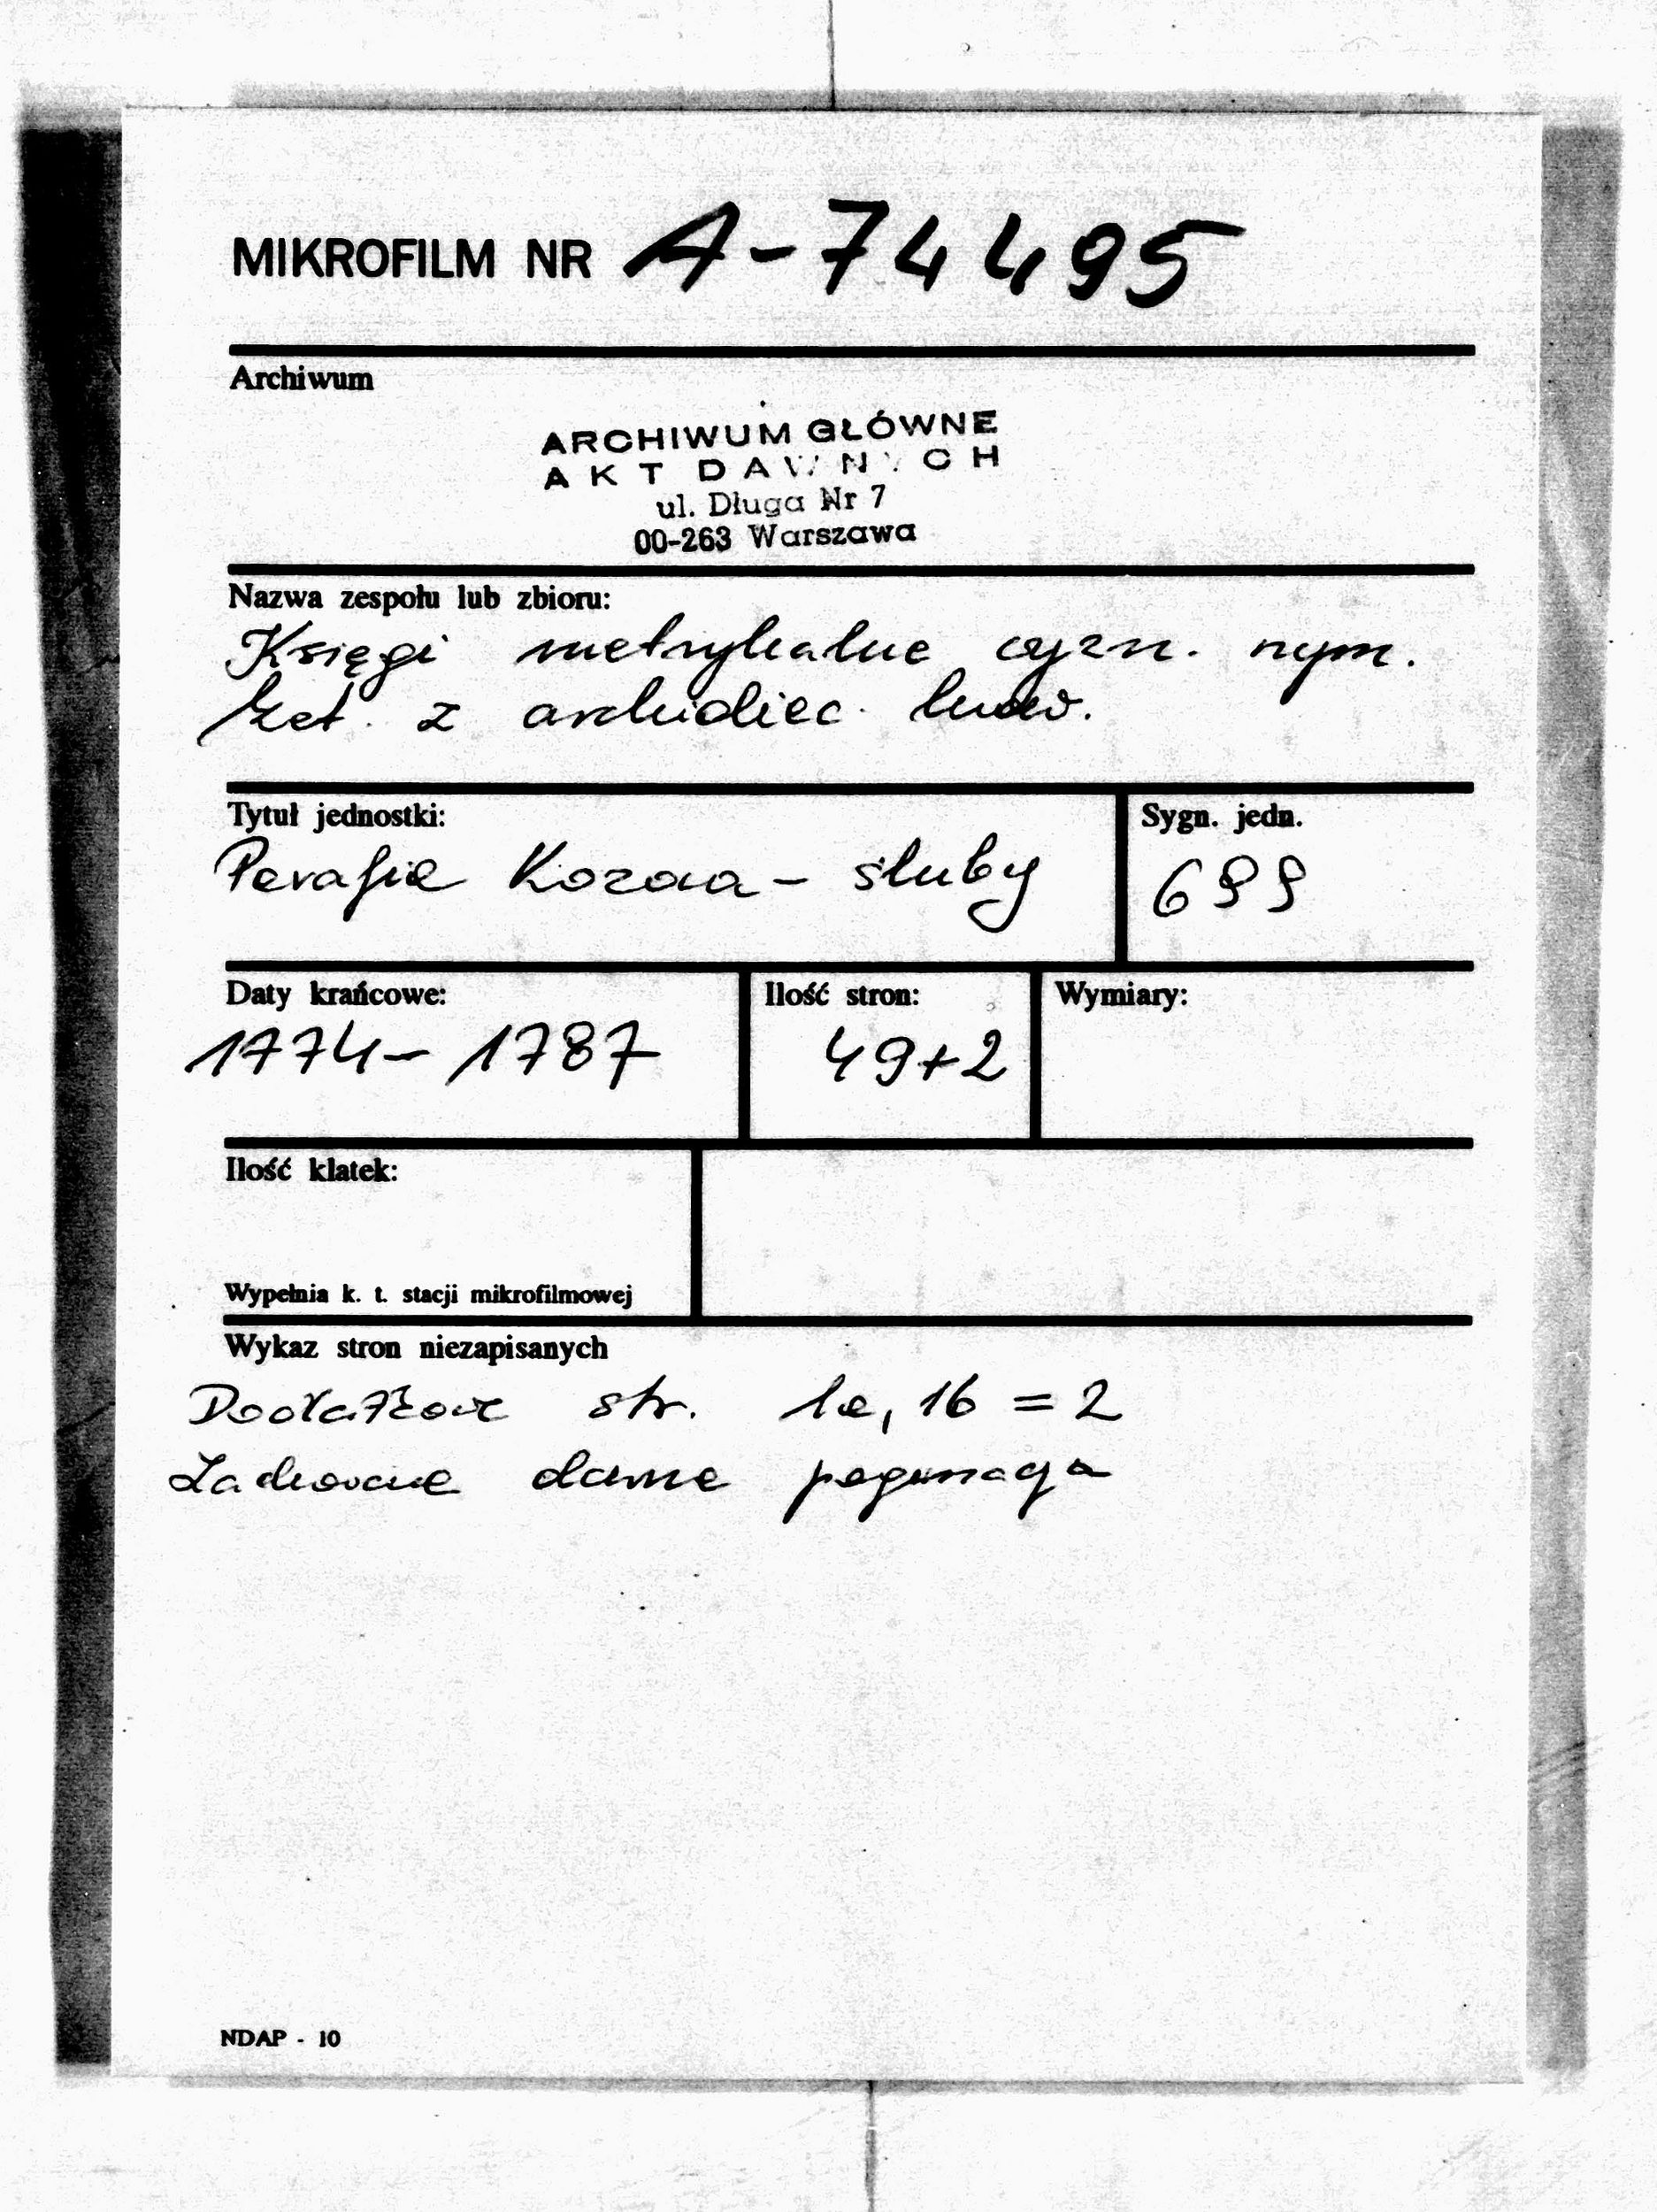 MIKROFILM NR A-74495
Archiwum
ARCHIWUM GŁÓWNE
AKT DAWNYCH
ul. Długa Nr 7
00-263 Warszawa
Nazwa zespołu lub zbioru:
Księgi metrykalne rym.
kat. z archidiec. lwow.
Tytuł jednostki:
Sygn. jedn.
Parafia - śluby
699
Daty krańcowe:
Ilość stron:
Wymiary:
1774- 1787
49+2
Ilość klatek:
Wypełnia k. t. stacji mikrofilmowej
Wykaz stron niezapisanych
Dodatkowe str. 1a, 1b = 2
Zachowane dawne paginacja
NDAP - 10